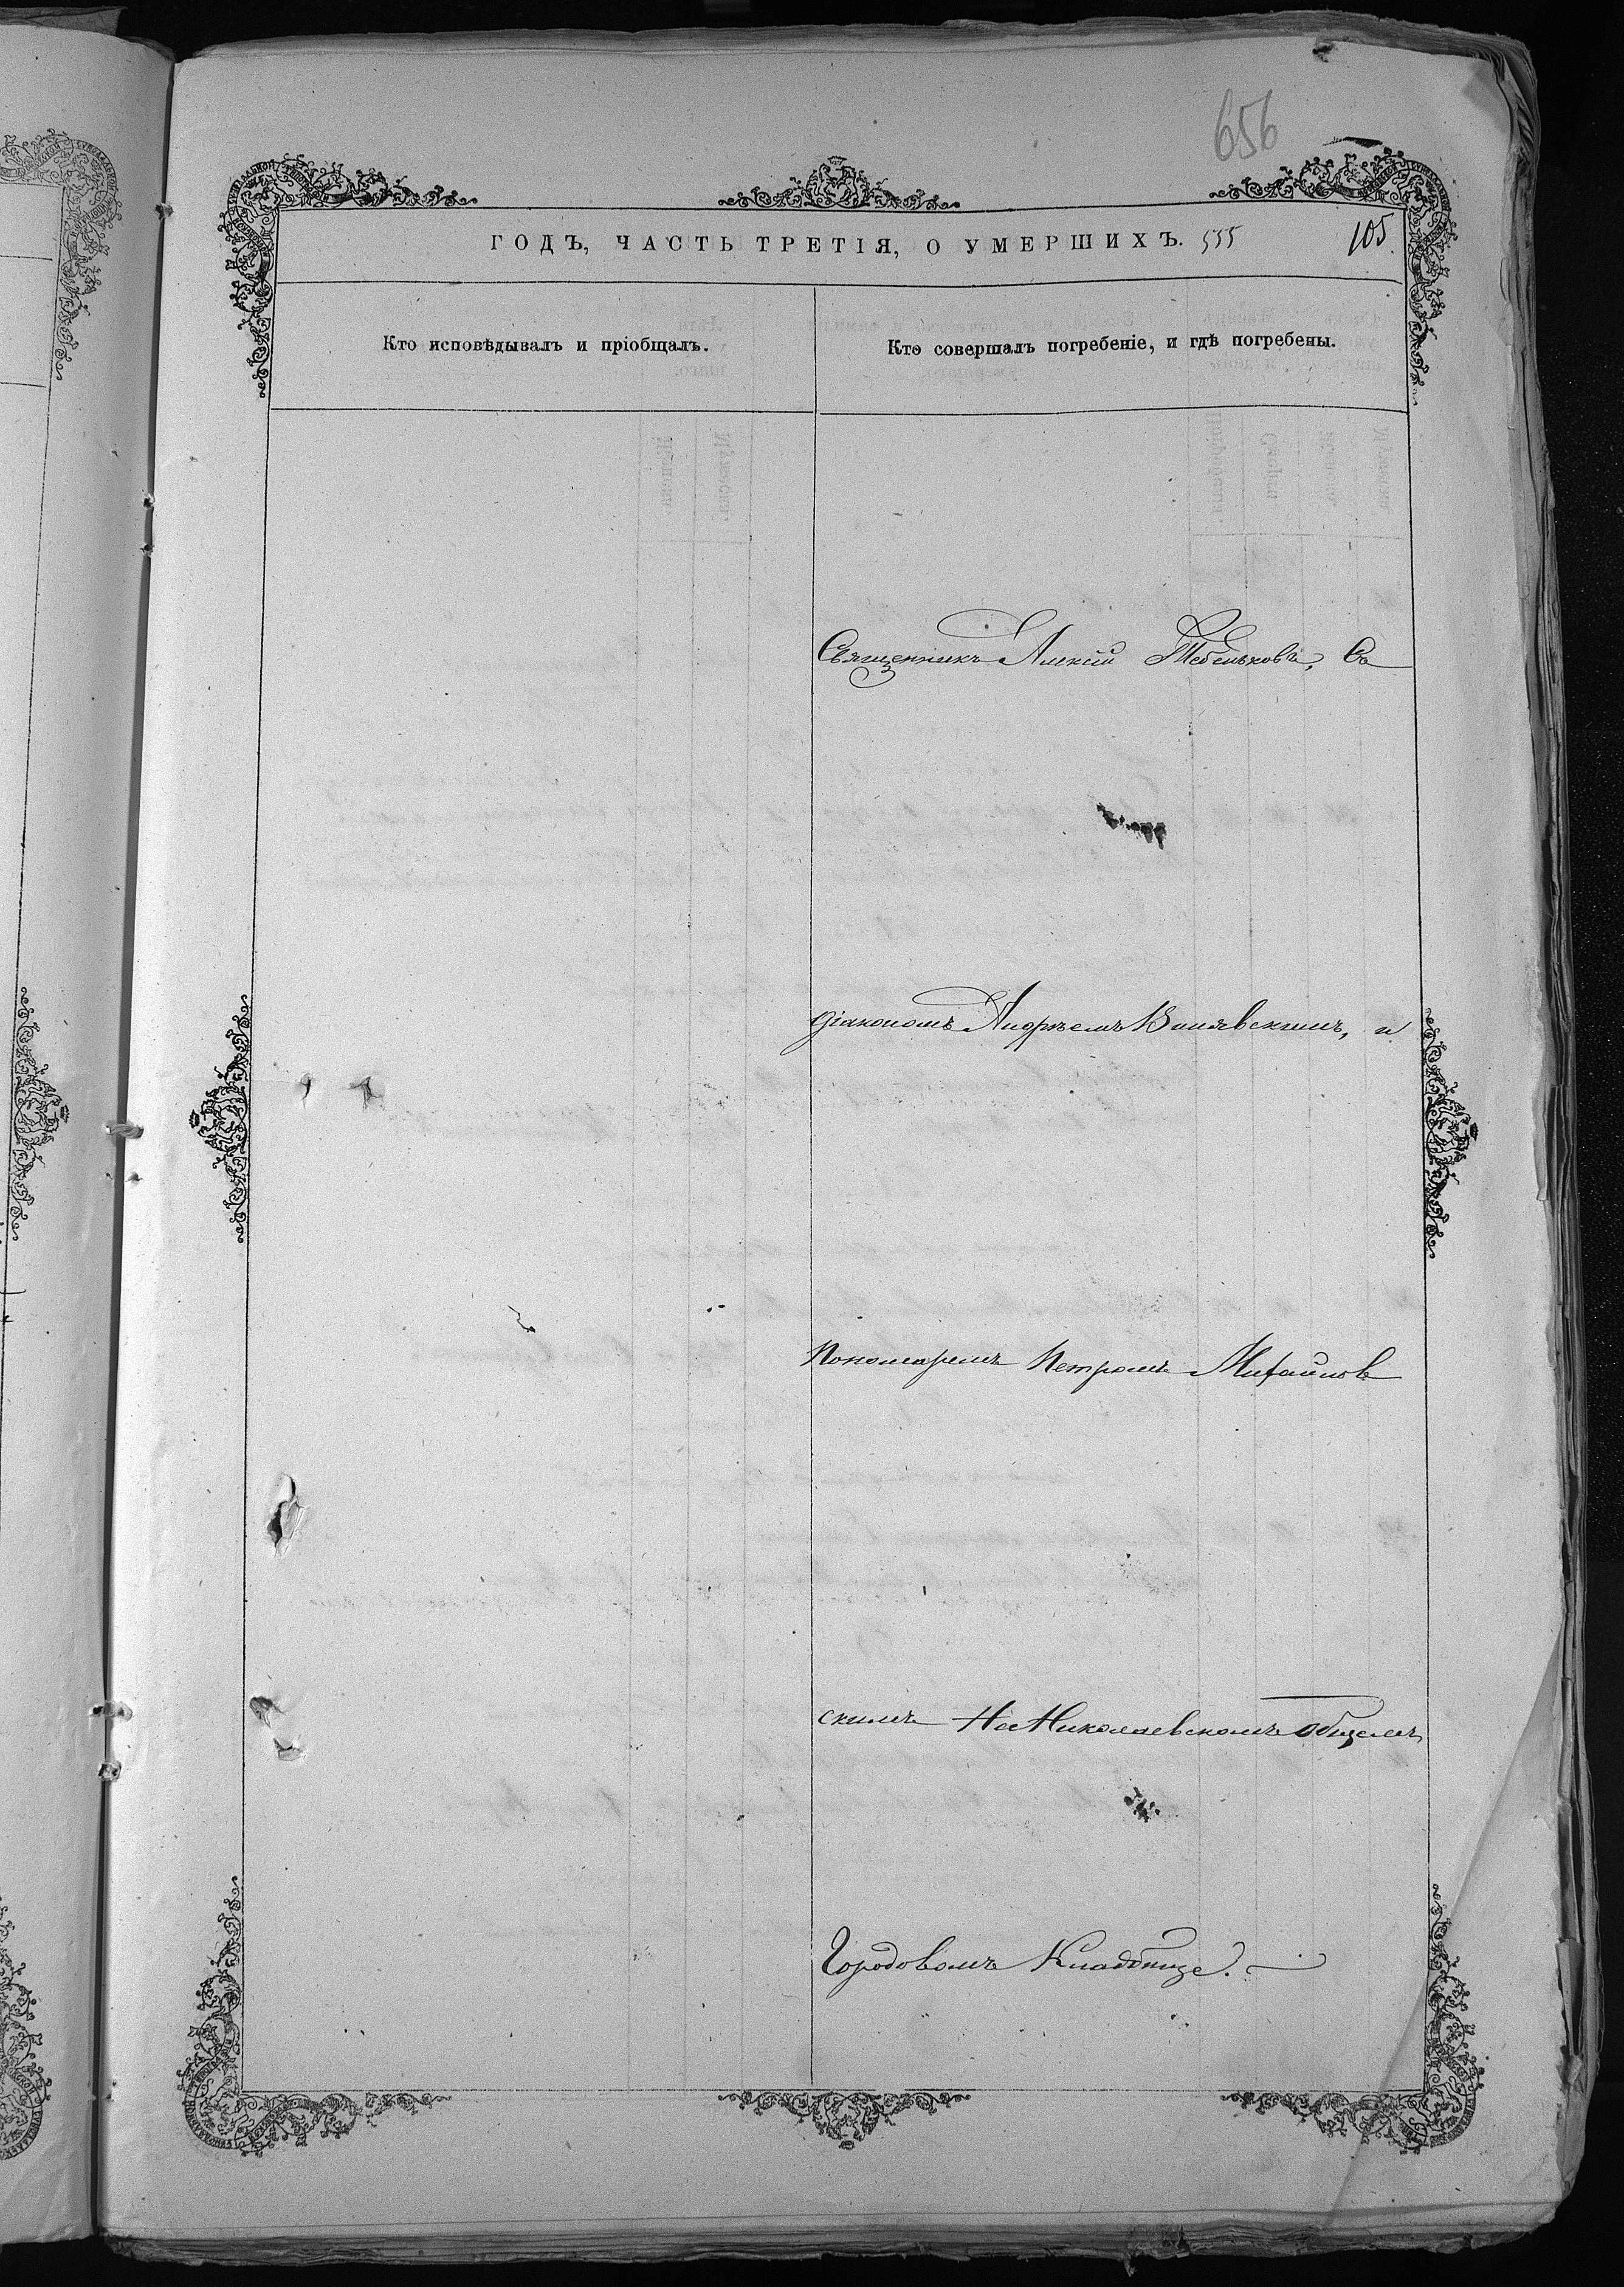 656
ГОДЪ, ЧАСТЬ ТРЕТІЯ, О УМЕРШИХЪ. 555 105
Кто исповѣдывалъ и пріобщалъ.
Кто совершалъ погребеніе, и гдѣ погребены.
Священникъ Алексій Тебеньковъ, Съ
діакономъ Андреемъ и
Пономаремъ Петромъ Михайлов
скимъ На Николаевскомъ Общемъ
Городовомъ Кладбище.